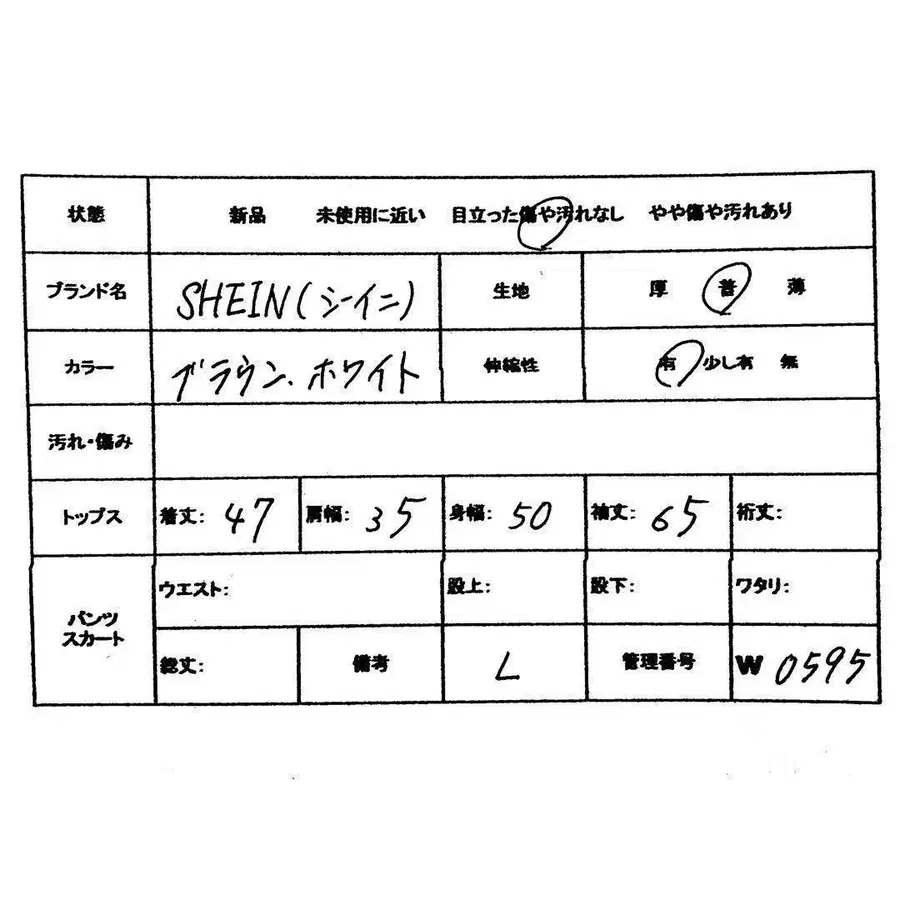 状態 新品 未使用に近い 目立った傷や汚れなし やや傷や汚れあり
ブランド名 SHEIN(シーイン) 生地 厚 普 薄
カラー ブラウン、ホワイト 伸縮性 有 少し有 無
汚れ・傷み
トップス 着丈: 47 肩幅: 35 身幅: 50 袖丈: 65 裄丈:
パンツ スカート ウエスト: 股上: 股下: ワタリ:
総丈: 備考 L 管理番号 W 0595